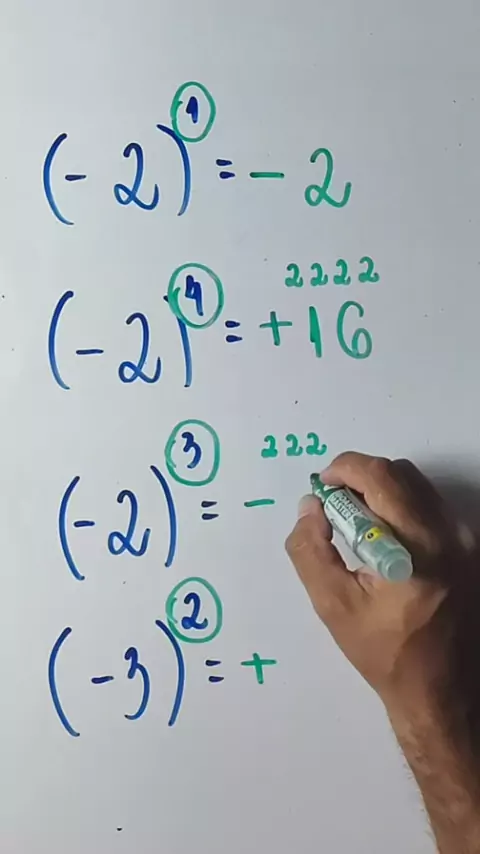 (-2)¹ = - 2
2 2 2 2
(-2)⁴ = + 16
2 2 2
(-2)³ = -
(-3)² = +